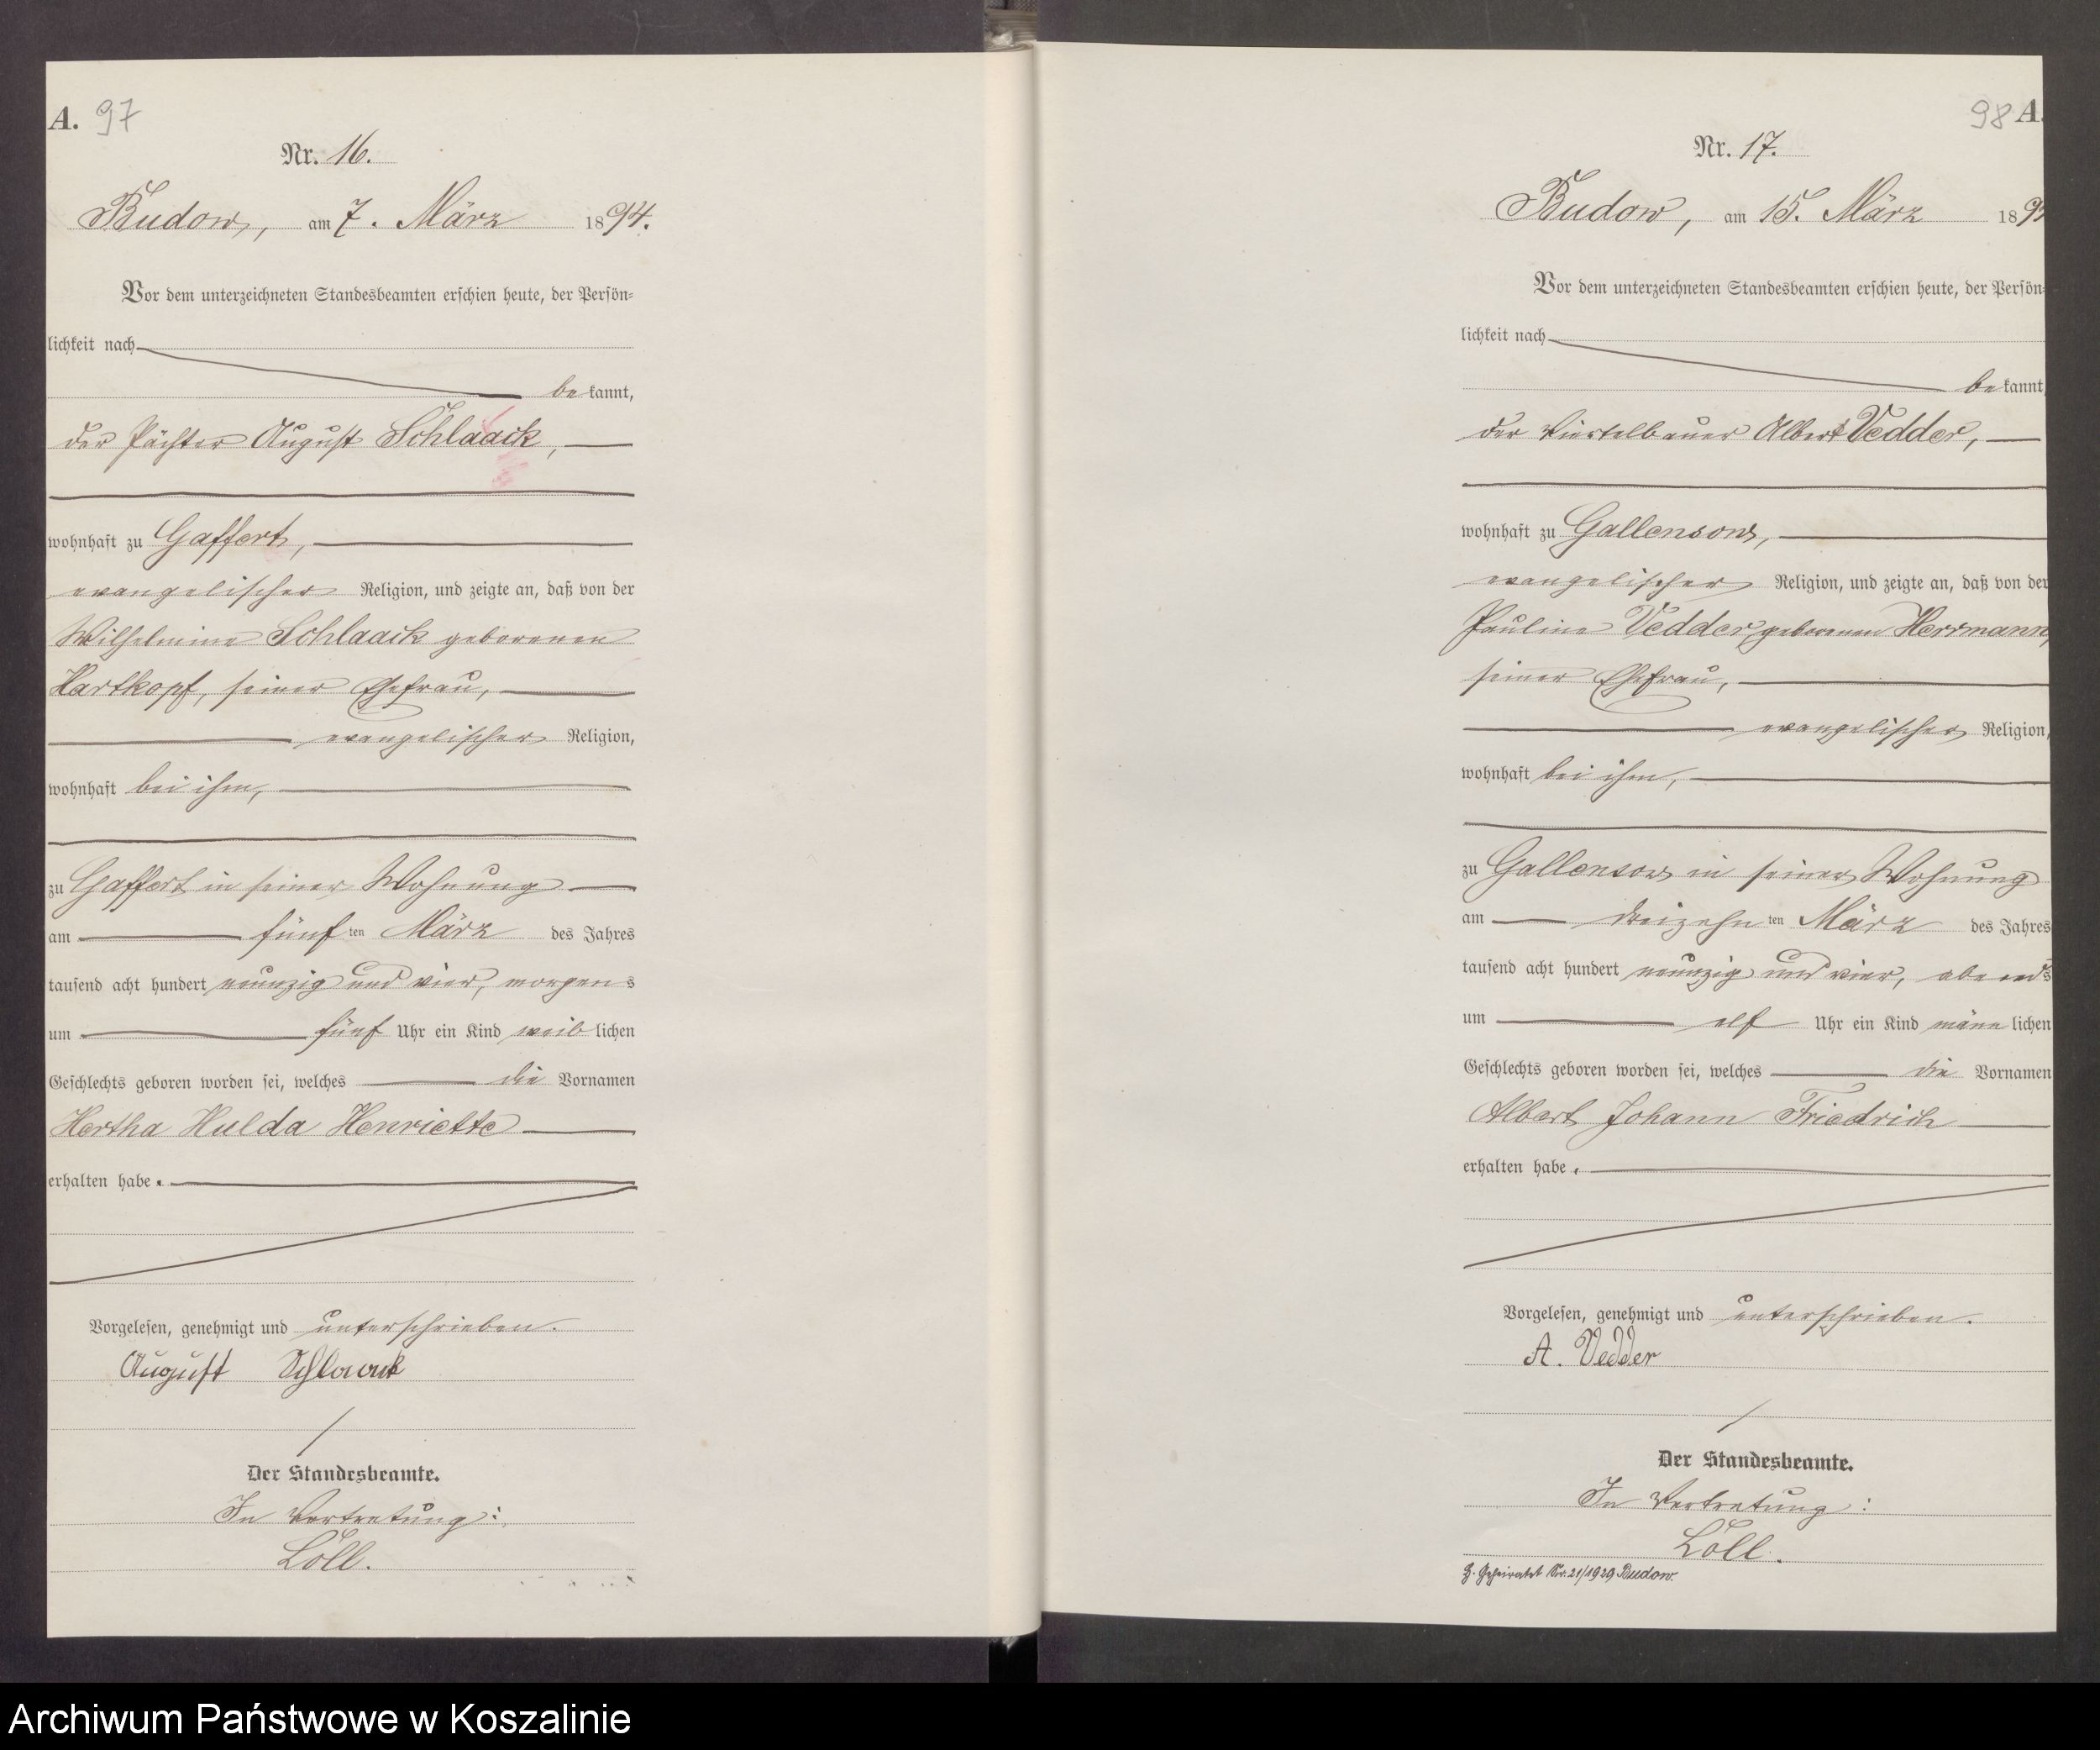 A. 97
Nr. 16.
Budow, am 7. März 1894.
Vor dem unterzeichneten Standesbeamten erschien heute, der Persön-
lichkeit nach
be kannt,
der Pächter August Schlaack,
wohnhaft zu Gaffert,
evangelischer Religion, und zeigte an, daß von der
Wilhelmine Schlaack geborenen
Hartkopf, seiner Ehefrau,
evangelischer Religion,
wohnhaft bei ihm,
zu Gaffert in seiner Wohnung
am fünf ten März des Jahres
tausend acht hundert neunzig und vier, morgens
um fünf Uhr ein Kind weib lichen
Geschlechts geboren worden sei, welches die Vornamen
Hertha Hulda Henriette
erhalten habe.
Vorgelesen, genehmigt und unterschrieben.
August Schlaack
Der Standesbeamte.
In Vertretung:
Löll.
98 A.
Nr. 17.
Budow, am 15. März 189
Vor dem unterzeichneten Standesbeamten erschien heute, der Persön-
lichkeit nach
be kannt,
der Viertelbauer Albert Vedder,
wohnhaft zu Gallensow,
evangelischer Religion, und zeigte an, daß von der
Pauline Vedder, geborenen Herrmann,
seiner Ehefrau,
evangelischer Religion,
wohnhaft bei ihm,
zu Gallensow in seiner Wohnung
am dreizehn ten März des Jahres
tausend acht hundert neunzig und vier, abends
um elf Uhr ein Kind männ lichen
Geschlechts geboren worden sei, welches die Vornamen
Albert Johann Friedrich
erhalten habe.
Vorgelesen, genehmigt und unterschrieben.
A. Vedder
Der Standesbeamte.
In Vertretung:
Löll.
Geheiratet Nr. 21/1929 Budow.
Archiwum Państwowe w Koszalinie